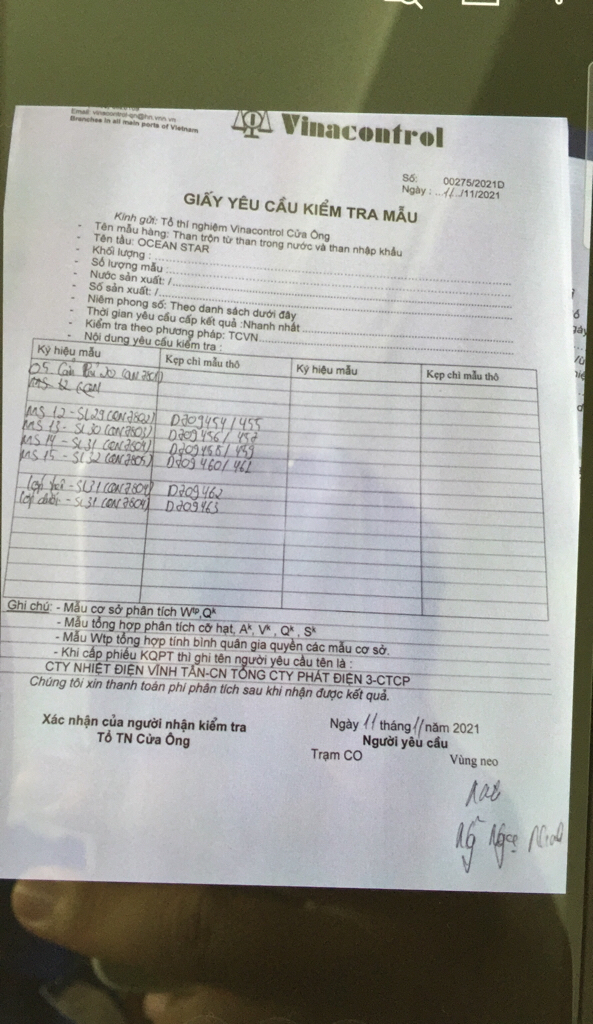 Email: vinacontrol-qn@hn.vnn.vn
Branches in all main ports of Vietnam
Vinacontrol
Số: 00275/2021D
Ngày : ..11../11/2021
GIẤY YÊU CẦU KIỂM TRA MẪU
Kính gửi: Tổ thí nghiệm Vinacontrol Cửa Ông
- Tên mẫu hàng: Than trộn từ than trong nước và than nhập khẩu
- Tên tàu: OCEAN STAR
- Khối lượng :
- Số lượng mẫu :
- Nước sản xuất: /
- Số sản xuất: /
- Niêm phong số: Theo danh sách dưới đây
- Thời gian yêu cầu cấp kết quả :Nhanh nhất
- Kiểm tra theo phương pháp: TCVN
- Nội dung yêu cầu kiểm tra :
Ký hiệu mẫu Kẹp chì mẫu thô Ký hiệu mẫu Kẹp chì mẫu thô
MS 12 - SL29 (QN7802) D709454/455
MS 13 - SL30 (QN7803) D709456/457
MS 14 - SL31 (QN7804) D709458/459
MS 15 - SL32 (QN7805) D709460/461
- SL31 (QN7804) D709462
- SL31 (QN7804) D709463
Ghi chú: - Mẫu cơ sở phân tích Wtp,Qk
- Mẫu tổng hợp phân tích cỡ hạt, Ak, Vk , Qk , Sk
- Mẫu Wtp tổng hợp tính bình quân gia quyền các mẫu cơ sở.
- Khi cấp phiếu KQPT thì ghi tên người yêu cầu tên là :
CTY NHIỆT ĐIỆN VĨNH TÂN-CN TỔNG CTY PHÁT ĐIỆN 3-CTCP
Chúng tôi xin thanh toán phí phân tích sau khi nhận được kết quả.
Xác nhận của người nhận kiểm tra
Tổ TN Cửa Ông
Ngày 11 tháng 11 năm 2021
Người yêu cầu
Trạm CO Vùng neo